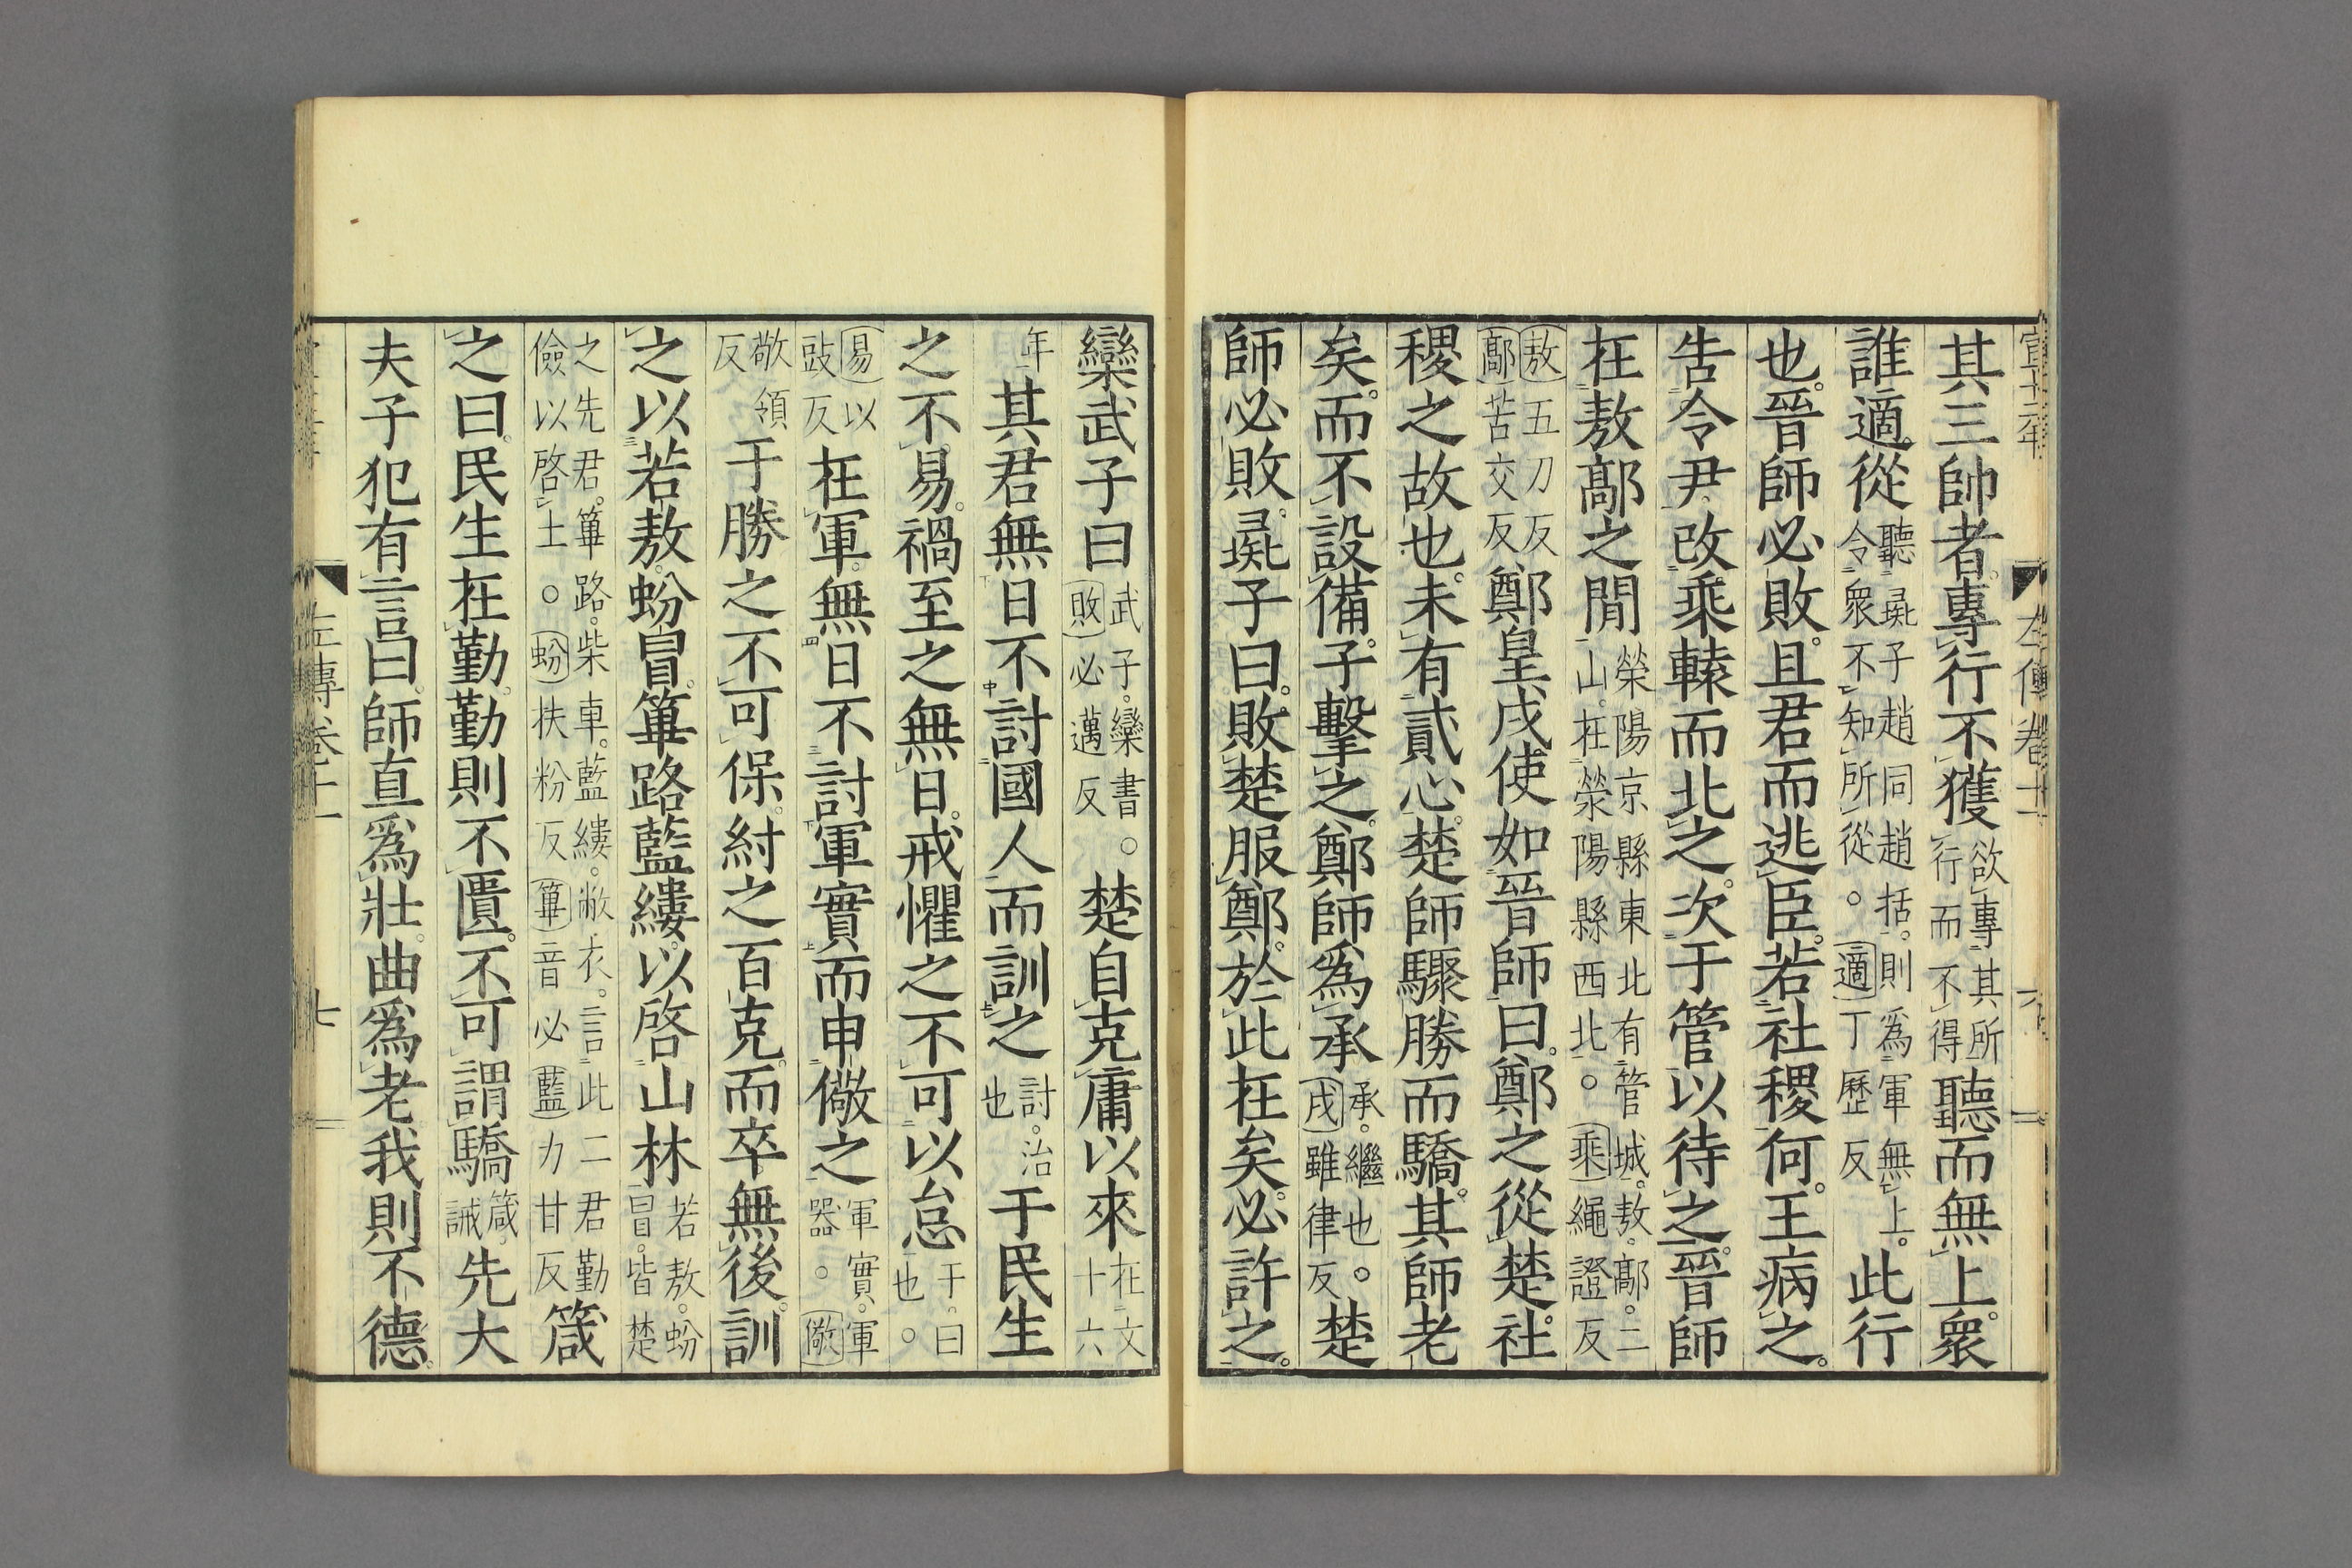 宣十二年 左傳卷十一 六
其三帥者。專行不獲欲專其所行而不得聽而無上。衆
誰適從聽彘子趙同趙括。則爲軍無上。令衆不知所從。○適丁歷反此行
也。晉師必敗。且君而逃臣。若社稷何。王病之。
告令尹。改乘轅而北之。次于管以待之。晉師
在敖鄗之閒滎陽京縣東北有管城。敖。鄗。二山。在滎陽縣西北。○乘繩證反
敖五刀反鄗苦交反鄭皇戌使如晉師曰。鄭之從楚。社
稷之故也。未有貳心。楚師驟勝而驕。其師老
矣。而不設備。子擊之。鄭師爲承承。繼也戌雖律反。楚
師必敗。彘子曰。敗楚服鄭。於此在矣。必許之。
欒武子曰武子。欒書。○敗必邁反楚自克庸以來在文十六
年其君無日不討國人而訓之討。治也于民生
之不易。禍至之無日。戒懼之不可以怠于。曰也。○
易以豉反在軍。無日不討軍實而申儆之軍實。軍器。○儆
敬領反于勝之不可保。紂之百克。而卒無後。訓
之以若敖。蚡冒。篳路藍縷。以啓山林若敖。蚡冒。皆楚
之先君。篳路。柴車。藍縷。敝衣。言此二君勤儉以啓土。○蚡扶粉反篳音必藍力甘反箴
之曰。民生在勤。勤則不匱。不可謂驕箴。誡先大
夫子犯有言曰。師直爲壯。曲爲老。我則不德。
左傳卷十一 七